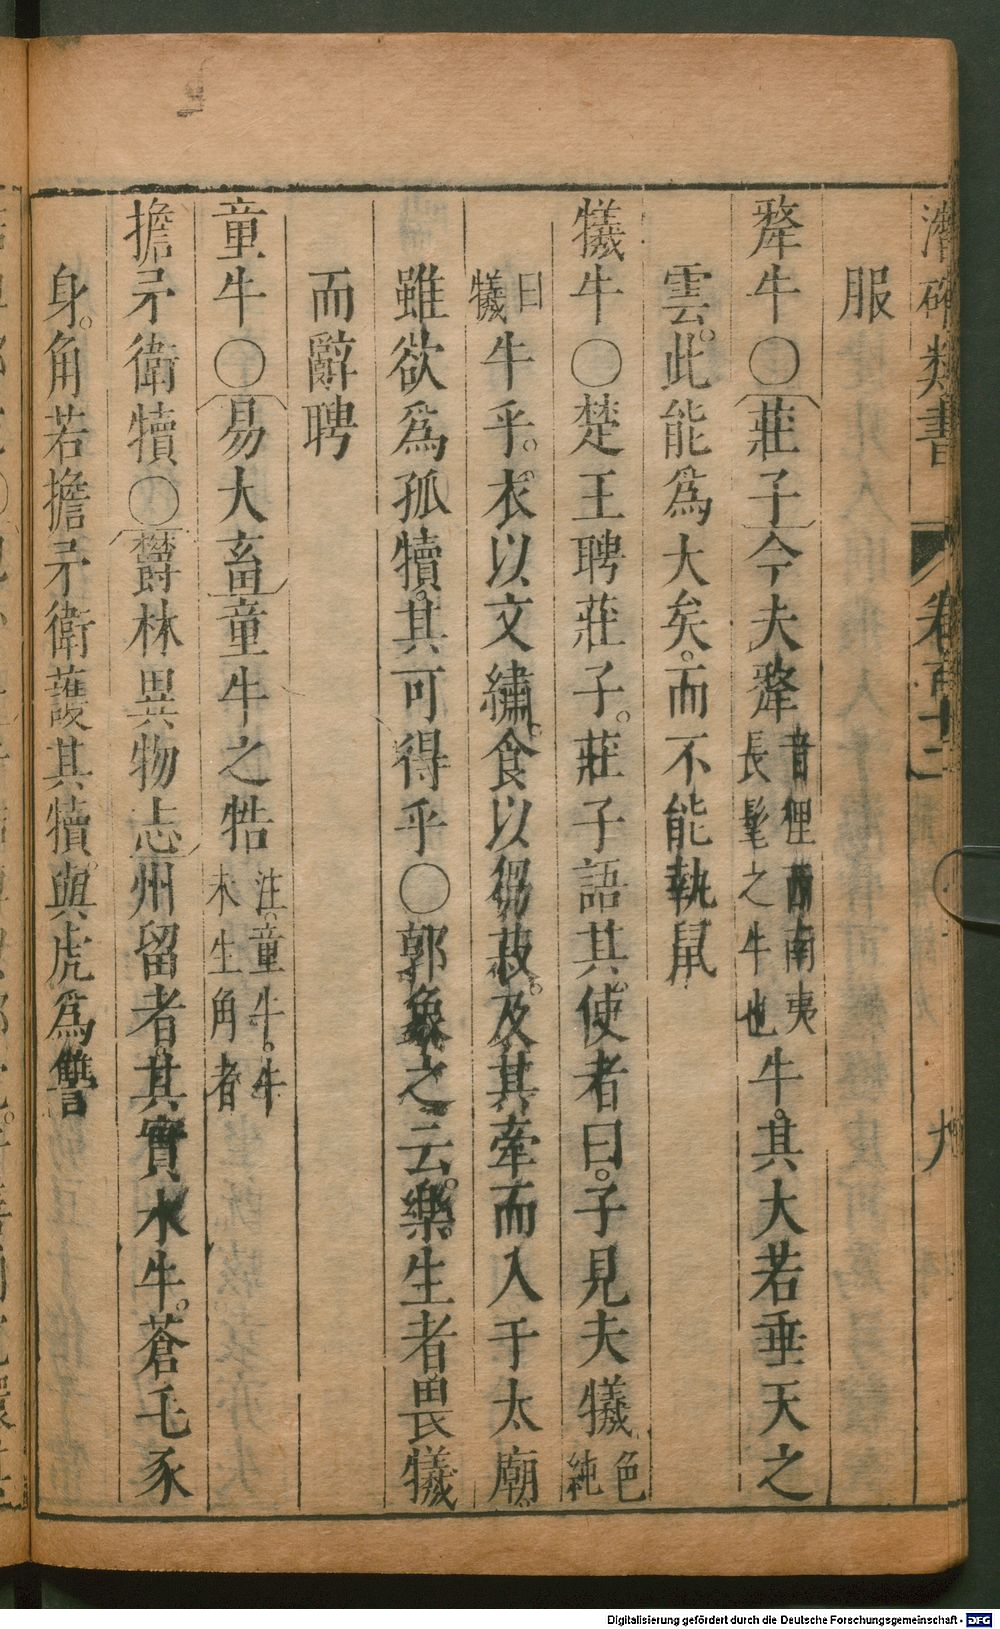 潛確類書 卷百十二 九
服
犛牛〇莊子今夫犛音狸西南夷長髦之牛也牛其大若垂天之
雲。此能爲大矣。而不能執鼠
犧牛〇楚王聘莊子。莊子語其使者曰。子見夫犧色純
曰犧牛乎。衣以文繡。食以芻菽。及其牽而入于太廟。
雖欲爲孤犢。其可得乎〇郭象之云。樂生者畏犧
而辭聘
童牛〇易大畜童牛之牿注。童牛。牛未生角者
擔矛衛犢〇鬱林異物志州留者。其實水牛。蒼毛豕
身。角若擔矛衛護其犢。與虎爲讐
Digitalisierung gefördert durch die Deutsche Forschungsgemeinschaft - DFG